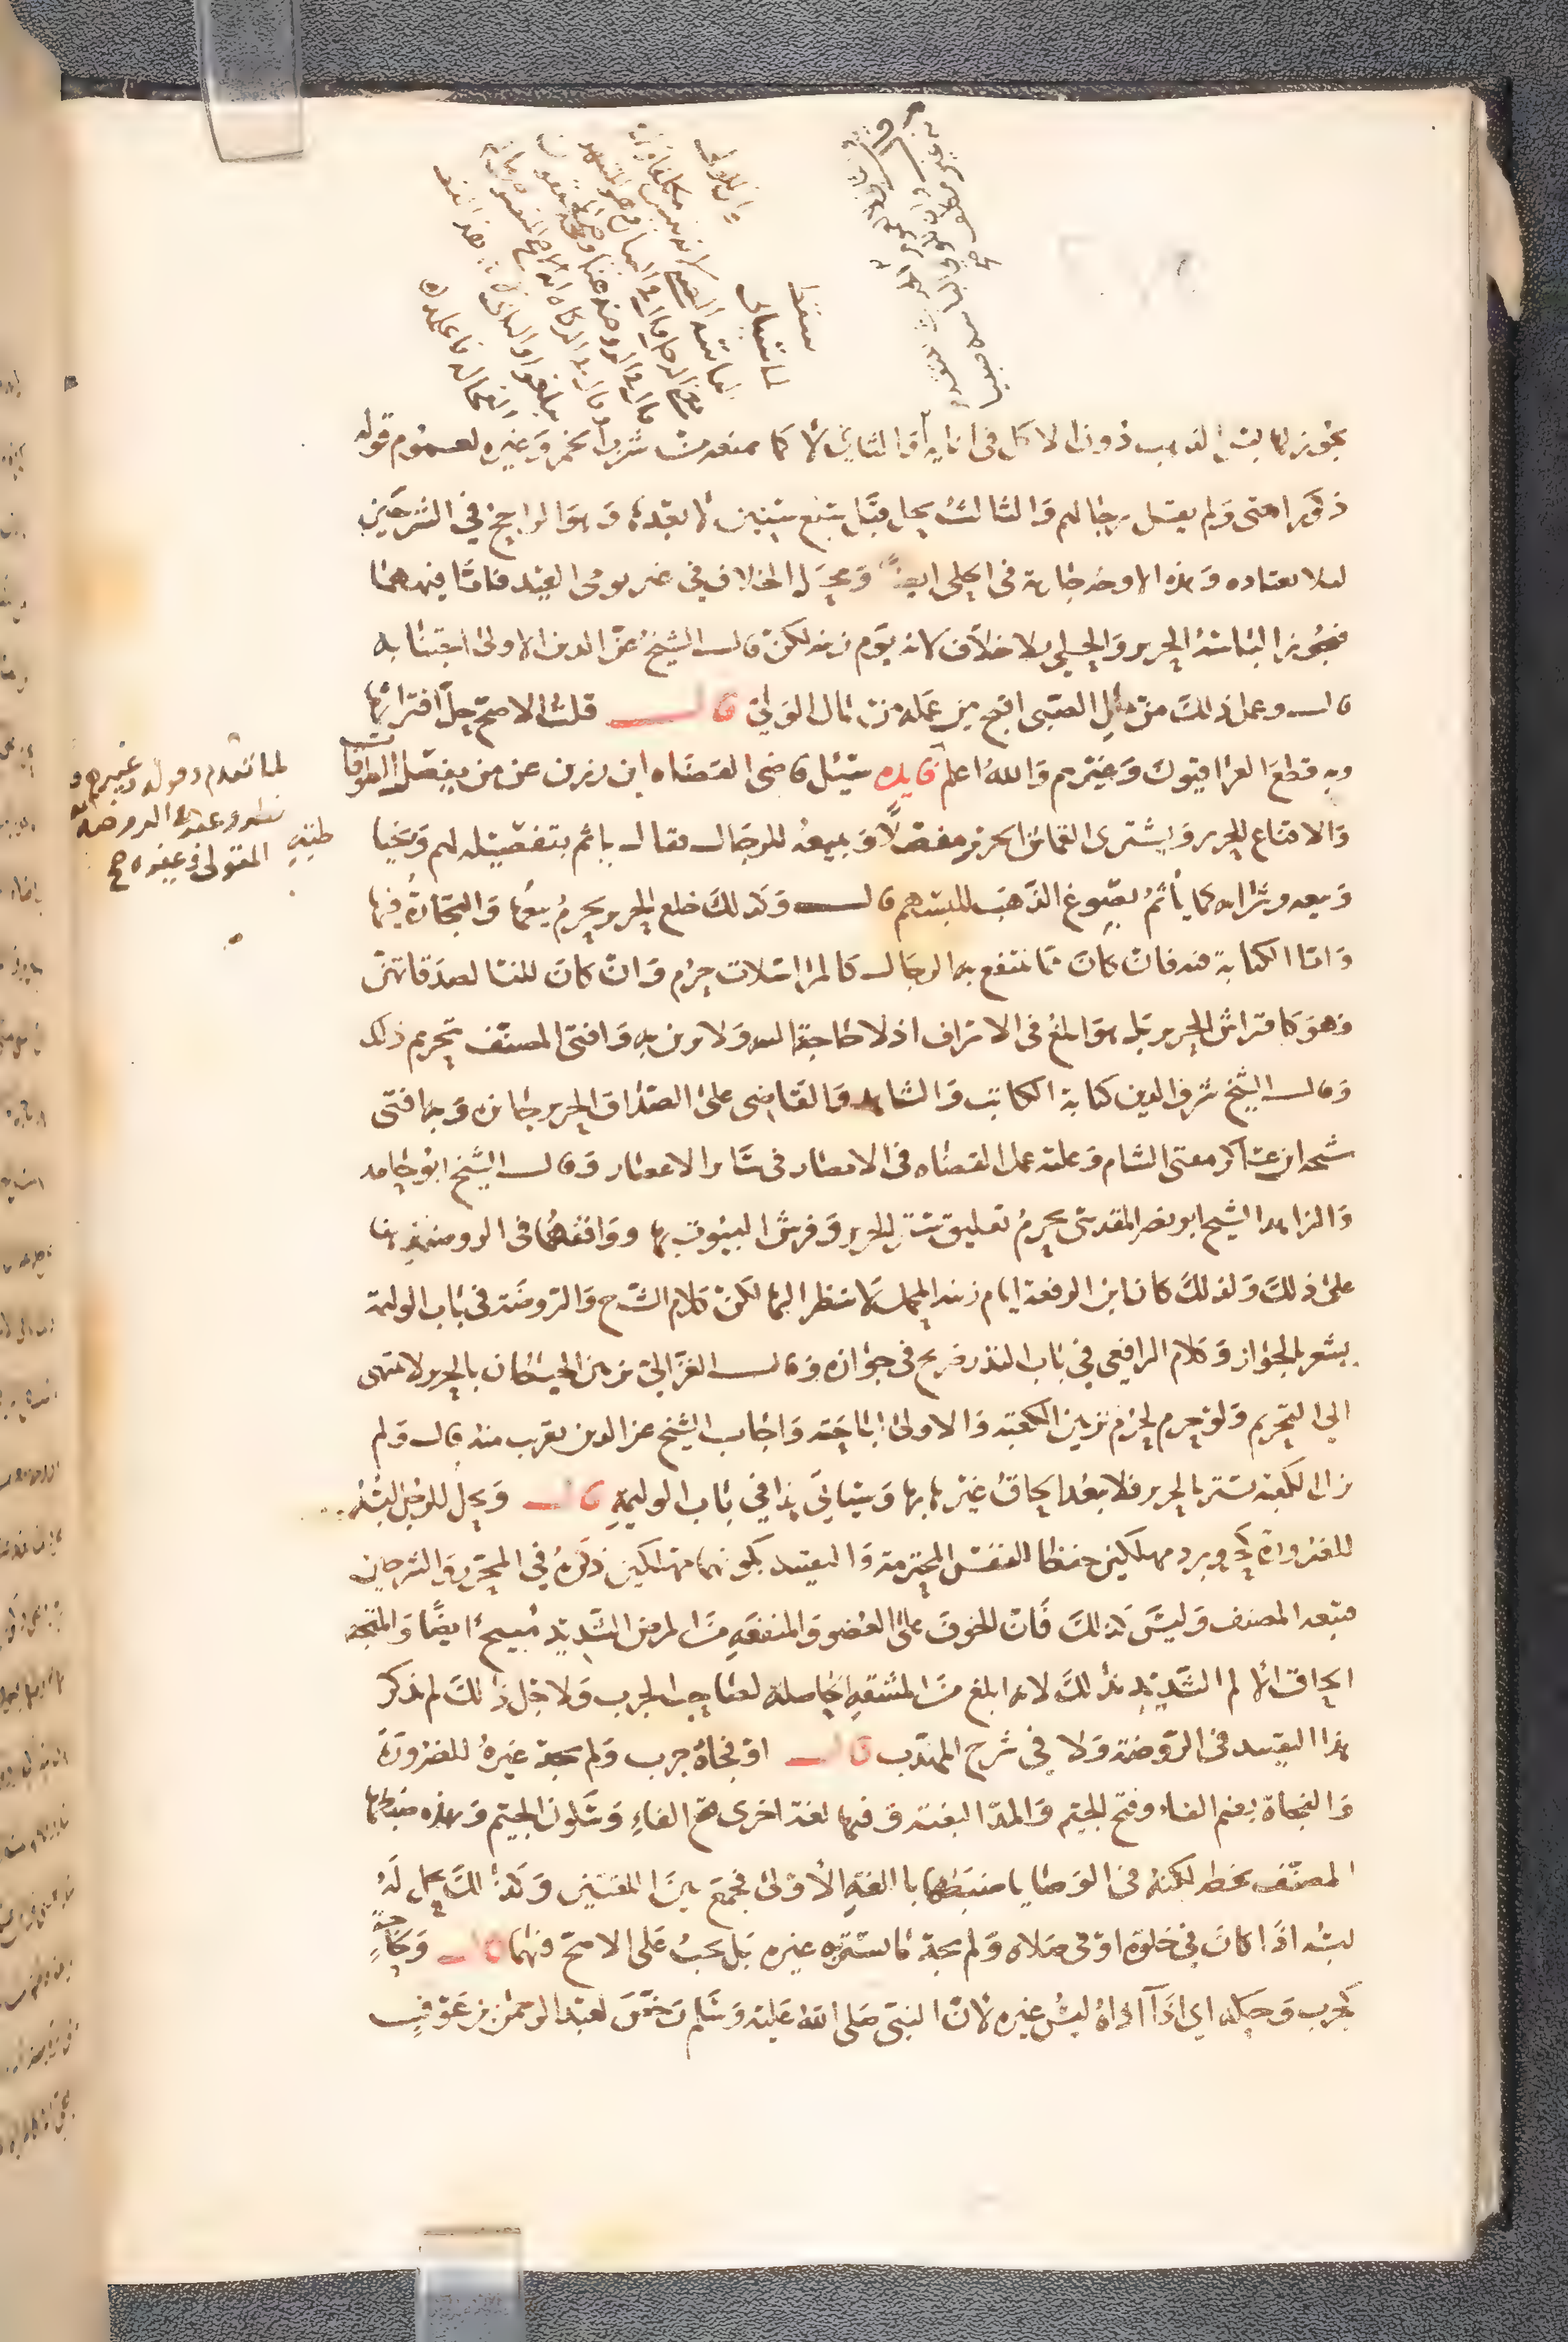 يجوز لها لبس الذهب دون الاكل في انائه والثاني لا كما يمنعه من شرب الخمر وغيره لعموم قوله
ذكور امتي ولم يقل رجالهم والثالث يحل قبل سبع سنين لا بعدها وهو الراجح في الشرحين
لئلا يعتاده وهذه الاوجه جارية في الحلي ايضا ومحل الخلاف في غير يومي العيد فاما فيهما
فيجوز الباسه الحرير والحلي بلا خلاف لانه يوم زينة لكن قال الشيخ عز الدين الاولى اجتنابه
قال وعمل ذلك من مال الصبي اقبح من عمله من مال الولي قال قلت الاصح حل افتراشها
وبه قطع العراقيون وغيرهم والله اعلم فايده سئل قاضي القضاه ابن رزين عن من يفصل الطواقي
والاقباع الحرير ويشتري القماش الحرير مفصلا ويبيعه للرجال فقال يأثم بتفصيله لهم ويخيا
وبيعه وشرائه كما يأثم بصوغ الذهب للبسهم قال وكذلك خلع الحرير يحرم بيعها والتجارة فيها
واما الكتابة فيه فان كان مما ينتفع به الرجال كالمراسلات حرم وان كان للنسا لصدقاتهن
فهو كافتراش الحرير بل هو ابلغ في الاسراف اذ لا حاجة اليه ولا زينة وافتى المصنف بتحريم ذلك
وقال الشيخ شرف الدين كتابة الكاتب والشاهد والقاضي على الصداق الحرير جائزه وبه افتى
شيخه ابن عساكر مفتي الشام وعليه عمل القضاه في الامصار في سائر الاعصار وقال الشيخ ابو حامد
والزاهد الشيخ ابو نصر المقدسي يحرم تعليق ستر الحرير وفرش البيوت بها ووافقهما في الروضة هنا
على ذلك ولذلك كان ابن الرفعة ايام زينة المحمل لا ينظر اليها لكن كلام الشرح والروضة في باب الوليمة
يشعر بالجواز وكلام الرافعي في باب النذر صريح في جوازه وقال الغزالي تزيين الحيطان بالحرير لا ينتهي
الى التحريم ولو حرم لحرم تزيين الكعبة والاولى اباحته واجاب الشيخ عز الدين بقرب منه قال ولم
تزل الكعبة تستر بالحرير فلا بعد الحاق غيرها بها وسياتي هذا في باب الوليمة قال ويحل للرجل لبسه
للضرورة كحر وبرد مهلكين حفظا للنفس المحترمة والتقييد بكونهما مهلكين ذكره في المحرر والشرحين
فتبعه المصنف وليس كذلك فان الخوف على العضو والمنفعه من المرض الشديد مبيح ايضا والمتجه
الحاق الالم الشديد بذلك لانه ابلغ من المشقه الحاصلة لصاحب الجرب ولاجل ذلك لم يذكر
هذا التقييد في الروضة ولا في شرح المهذب قال او فجأة حرب ولم يجد غيره للضرورة
والفجاة بضم الفاء وفتح الجيم والمد البغتة وفيها لغة اخرى فتح الفاء وسكون الجيم وهذه ضبطها
المصنف بخطه لكنه في الوصايا ضبطها باللغة الاولى فجمع بين اللغتين وكذلك يحل له
لبسه اذا كان في خلوة او في صلاه ولم يجد ما يستره غيره بل يجب على الاصح فيهما قال وحاجة
كجرب وحكه اي اذا آذاه لبس غيره لان النبي صلى الله عليه وسلم رخص لعبد الرحمن بن عوف
لما تقدم وقوله وغيرهم
الروضة
المتولي وغيره صح